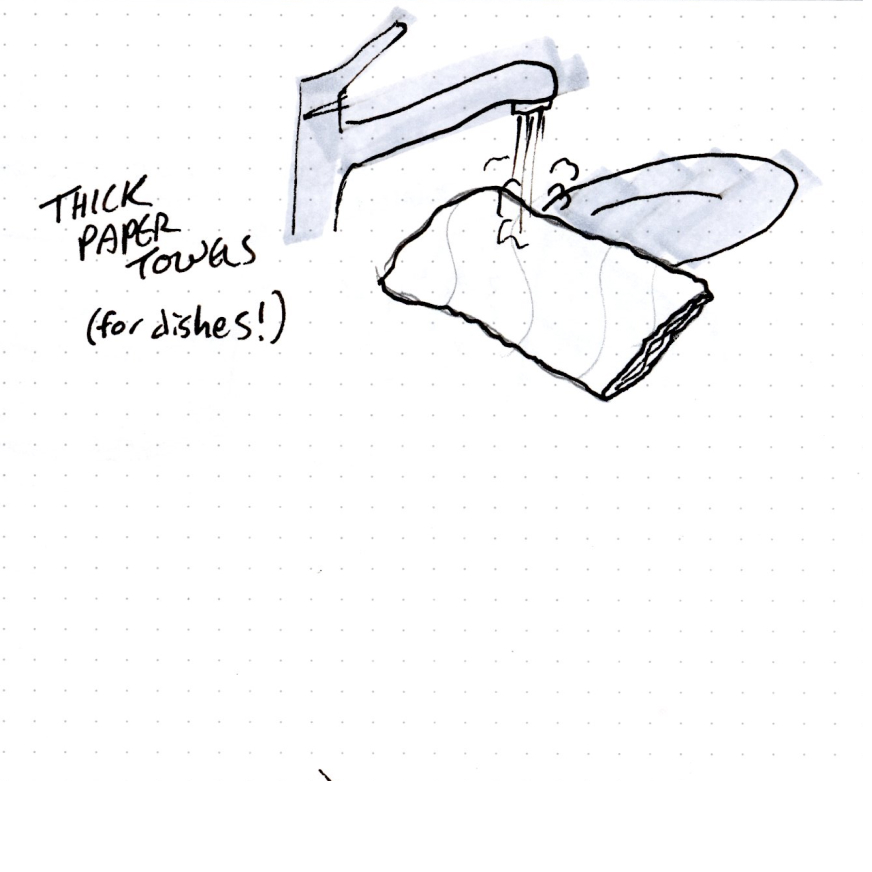 THICK
PAPER
TOWELS
(for dishes!)